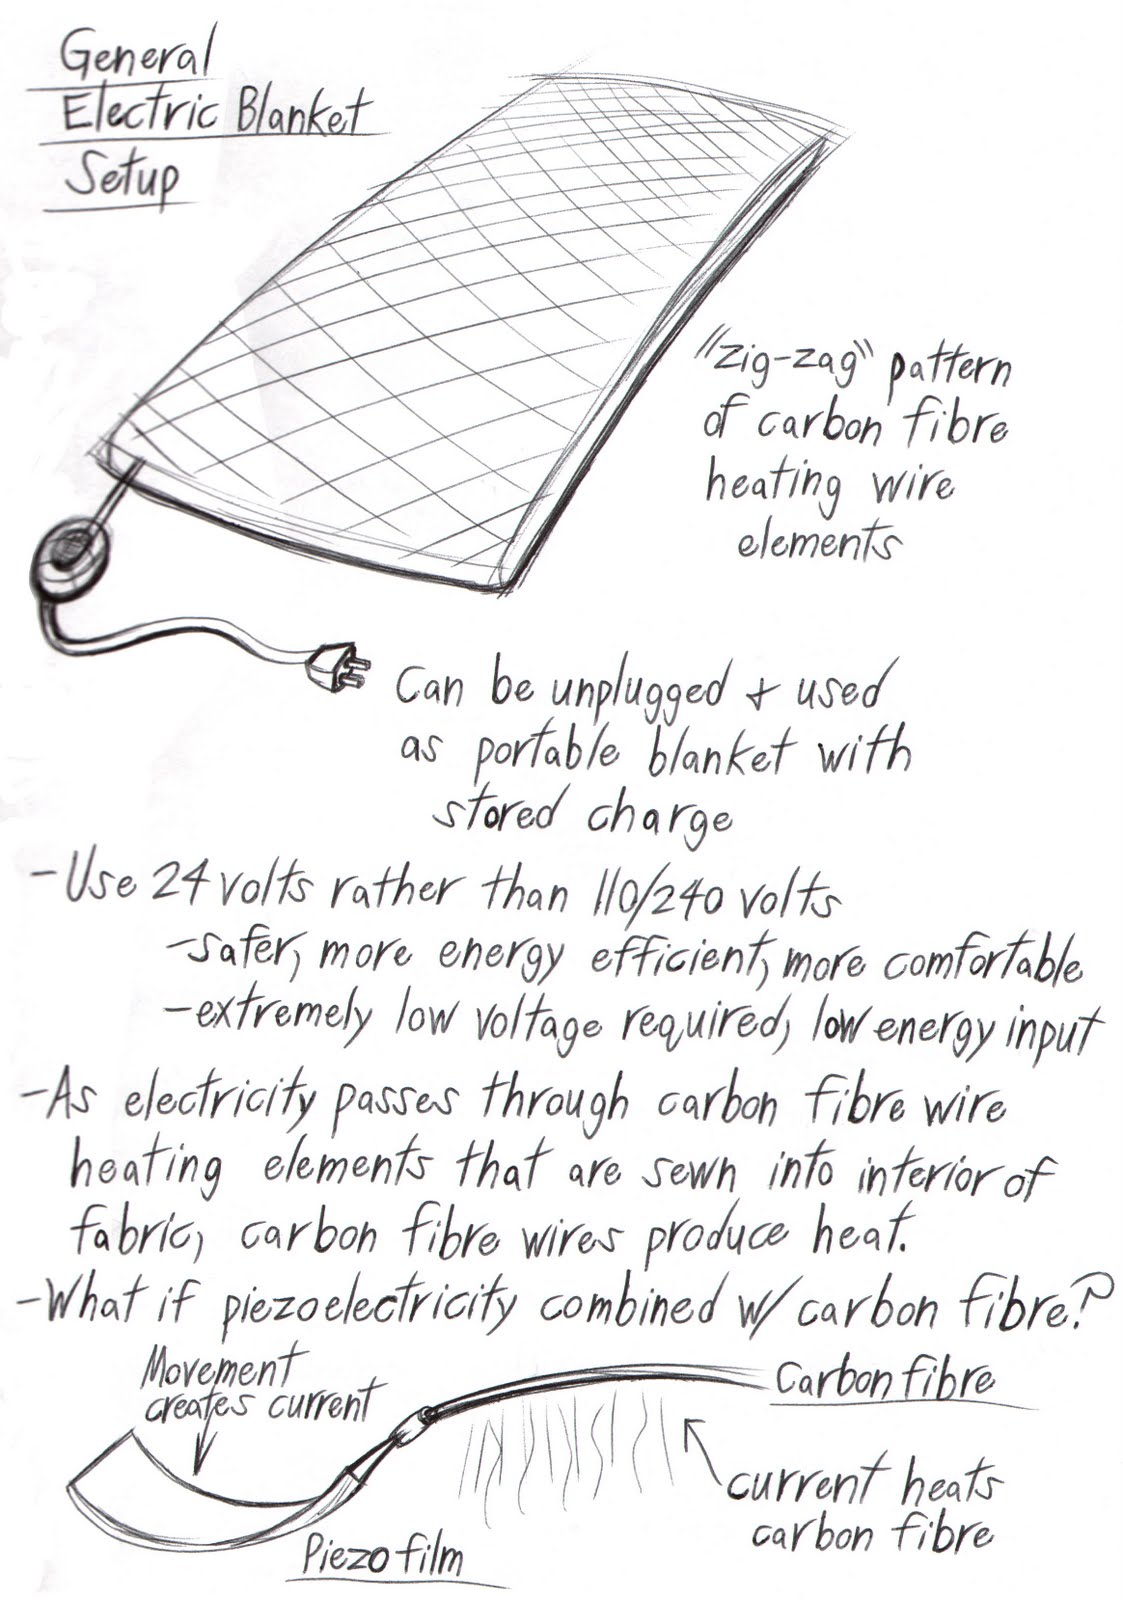 General
Electric Blanket
Setup
"zig-zag" pattern
of carbon fibre
heating wire
elements
Can be unplugged + used
as portable blanket with
stored charge
-Use 24 volts rather than 110/240 volts
-safer, more energy efficient, more comfortable
-extremely low voltage required, low energy input
-As electricity passes through carbon fibre wire
heating elements that are sewn into interior of
fabric, carbon fibre wires produce heat.
-What if piezoelectricity combined w/ carbon fibre?
Movement
creates current
Carbon fibre
current heats
carbon fibre
Piezo film